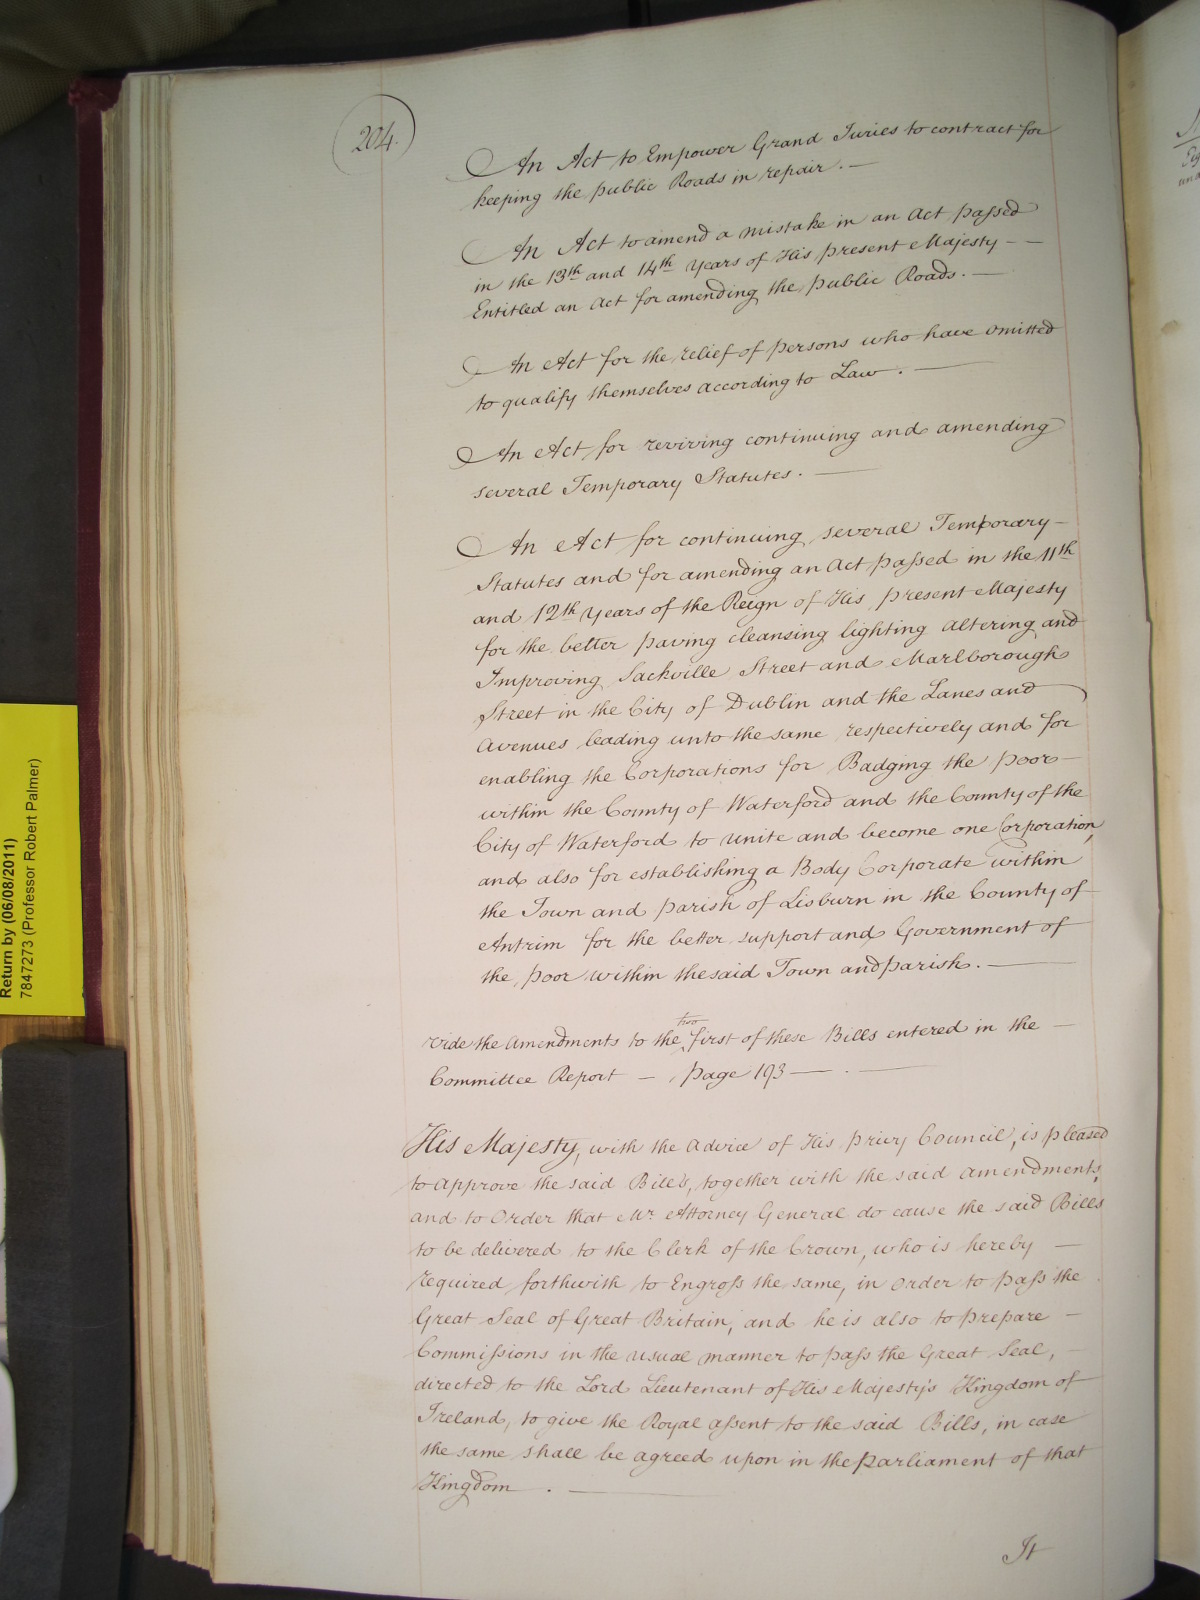 204.
An Act to Empower Grand Juries to contract for
keeping the public Roads in repair. —
An Act to amend a mistake in an Act passed
in the 13th and 14th Years of His present Majesty – –
Entitled an Act for amending the public Roads. —
An Act for the relief of persons who have omitted
to qualify themselves according to Law. —
An Act for reviving continuing and amending
several Temporary Statutes. —
An Act for continuing several Temporary –
Statutes and for amending an Act passed in the 11th
and 12th Years of the Reign of His present Majesty
for the better paving cleansing lighting altering and
Improving Sackville Street and Marlborough
Street in the City of Dublin and the Lanes and
Avenues leading unto the same respectively and for
enabling the Corporations for Badging the poor –
within the County of Waterford and the County of the
City of Waterford to unite and become one Corporation,
and also for establishing a Body Corporate within
the Town and parish of Lisburn in the County of
Antrim for the better support and Government of
the poor within the said Town and parish. —
two
vide the Amendments to the first of these Bills entered in the –
Committee Report – page 193 — . —
His Majesty, with the Advice of His privy Council, is pleased
to approve the said Bills, together with the said amendments,
and to Order that Mr. Attorney General do cause the said Bills
to be delivered to the Clerk of the Crown, who is hereby –
required forthwith to Engross the same, in order to pass the
Great Seal of Great Britain, and he is also to prepare –
Commissions in the usual manner to pass the Great Seal, –
directed to the Lord Lieutenant of His Majesty's Kingdom of
Ireland, to give the Royal assent to the said Bills, in case
the same shall be agreed upon in the Parliament of that
Kingdom . —
It
Return by (06/08/2011)
7847273 (Professor Robert Palmer)